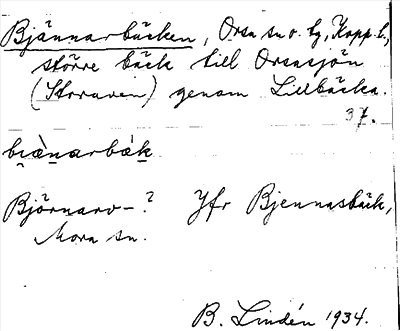 Bjännarbäcken, Orsa sn o. tg, Kopp. l.,
större bäck till Orsasjön
(Storaven) genom Lillbäcka.
37.
bi̯ä̀narbäk
Björnarv-? Jfr Bjennasbäck,
Mora sn.
B. Lindén 1934.